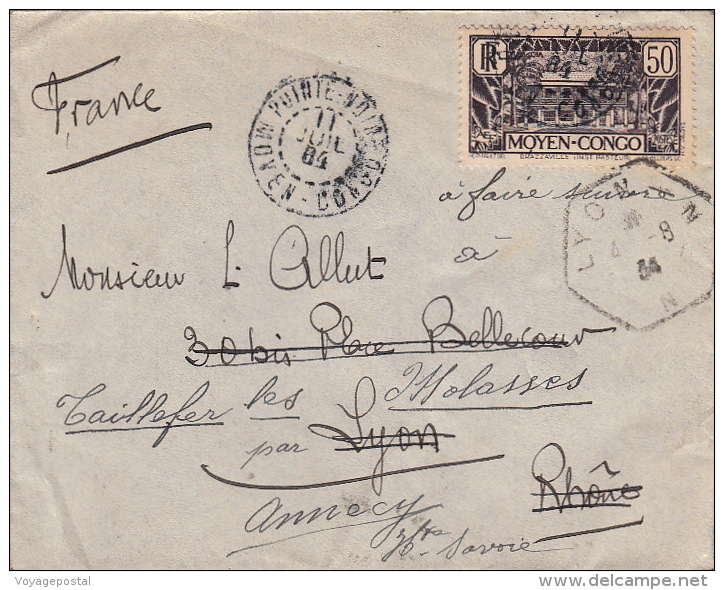 France
POINTE-NOIRE
11
JUIL
34
MOYEN-CONGO
RF
50
MOYEN-CONGO
BRAZZAVILLE (INST. PASTEUR)
à faire suivre
à
LYON
4 -8
34
Monsieur L. Allut
30 bis Place Bellecour
Taillefer les Molasses
par Lyon
Annecy
Rhône
Hte Savoie
Voyagepostal
delcampe.net